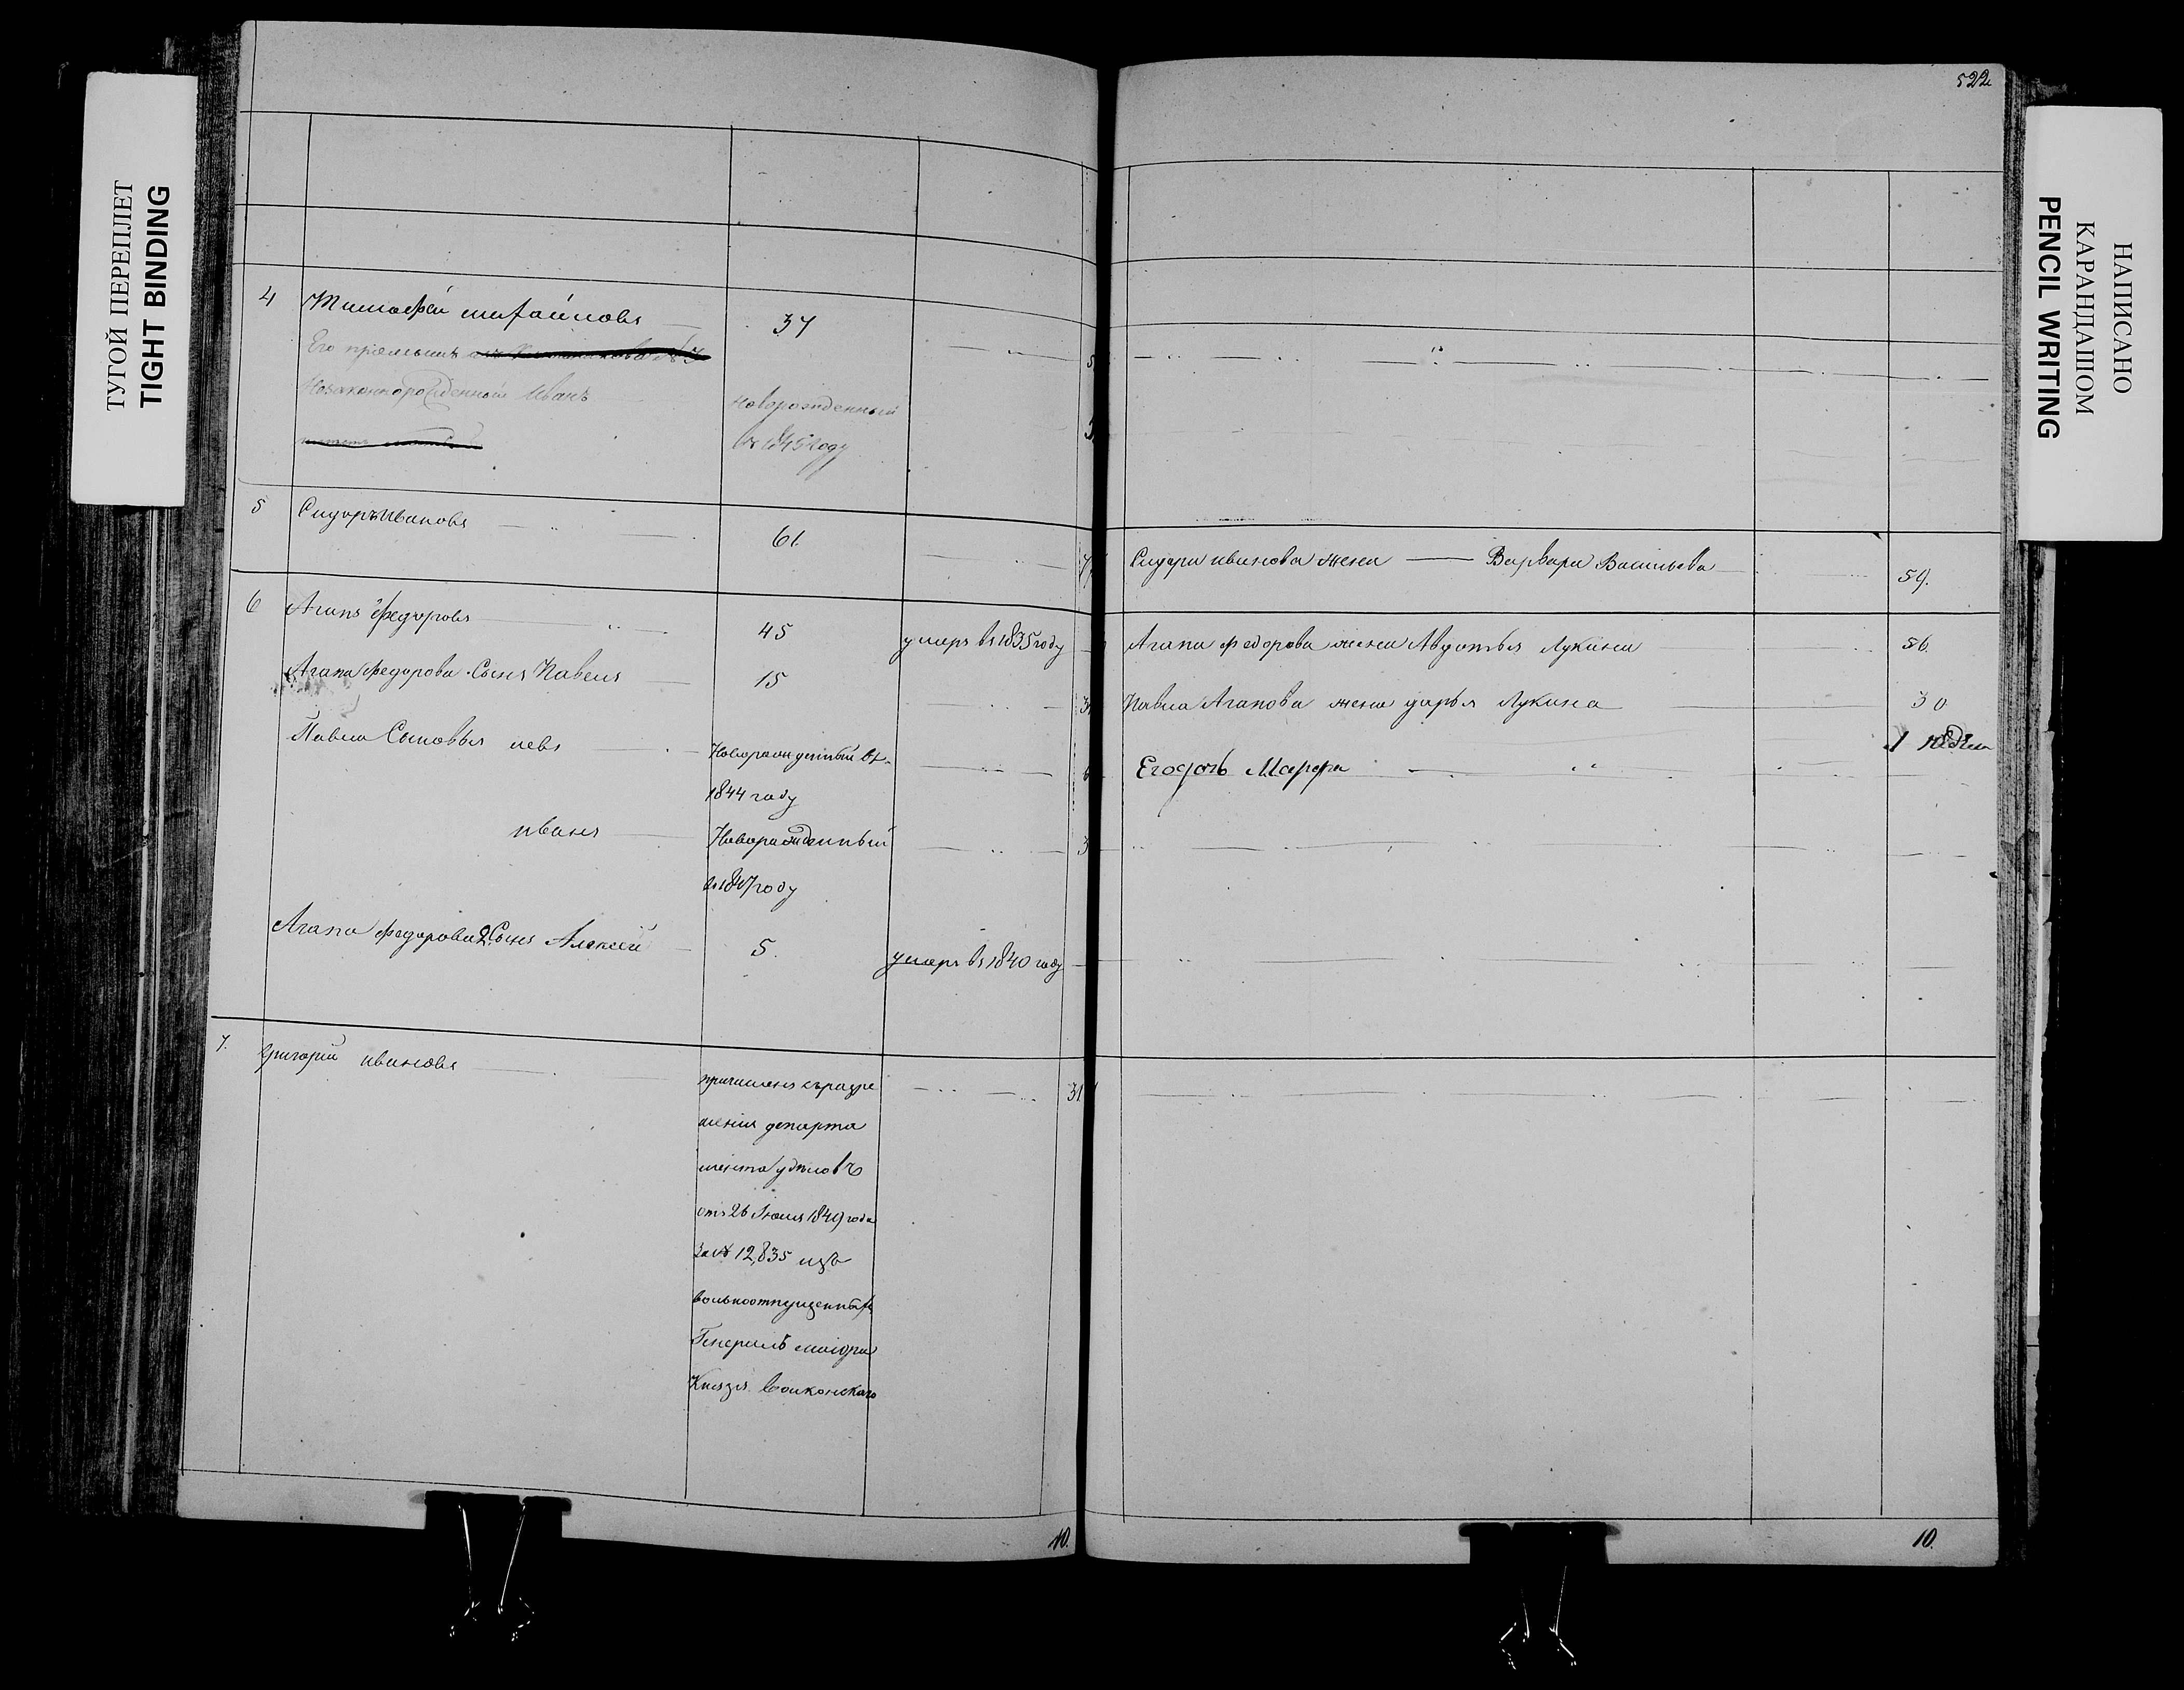 ТУГОЙ ПЕРЕПЛЕТ
TIGHT BINDING
НАПИСАНО
КАРАНДАШОМ
PENCIL WRITING
522
4 Тимофей михайловъ 37
Его приемышъ
Незаконнорожденный Иванъ новорожденный
въ 1845 году
5 Сидоръ Ивановъ 61.
Сидора иванова жена Варвара Васильева 59.
6 Агапъ Федоровъ 45 умеръ въ 1835 году
Агапа федорова жена Авдотья Лукина 56.
Агапа Федорова Сынъ Павелъ 15
Павла Агапова жена дарья Лукина 30
Павла Сыновья левъ Новорожденный въ
1844 году
Егодочь Марфа 1 недѣл
иванъ Новорожденный
въ 1847 году
Агапа Федорова 2 Сынъ Алексей 5. умеръ въ 1840 году
7. григорий ивановъ 31
причисленъ съ разре
шения департа
мента удѣловъ
отъ 26 Июля 1849 года
за № 12,835 изъ
вольноотпущенныхъ
Генералъ маиора
Князя Волконскаго
10.
10.